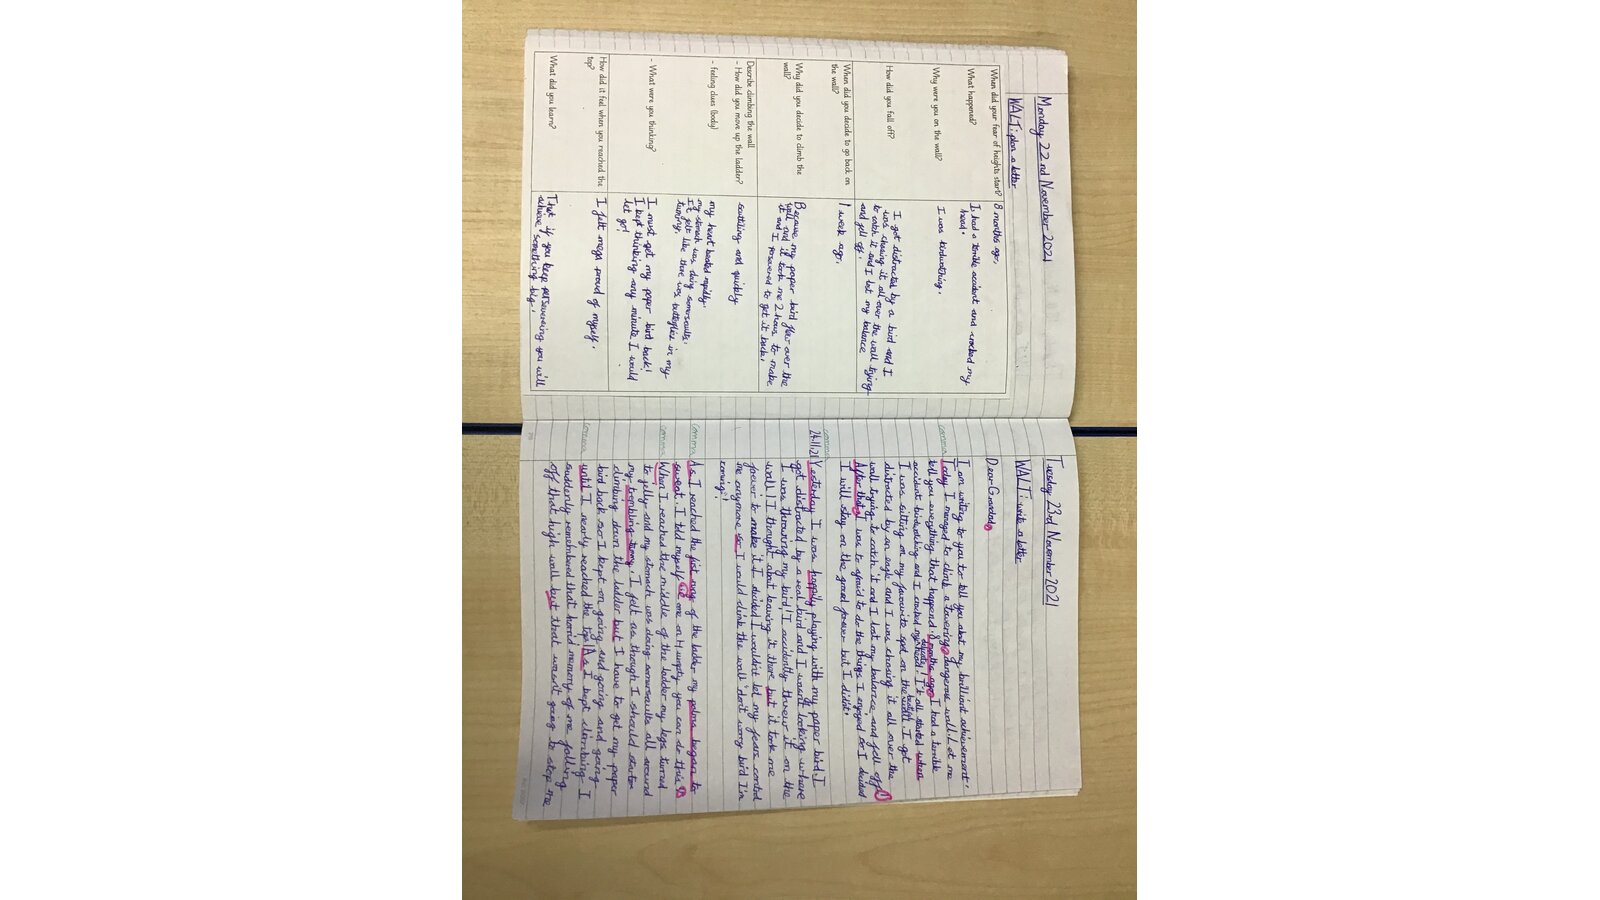 Monday 22nd November 2021
WALT: plan a letter
When did your fear of heights start?
8 months ago,
What happened?
I had a terrible accident and cracked my
head.
Why were you on the wall?
I was birdwatching.
How did you fall off?
I got distracted by a bird and I
was chasing it all over the wall trying
to catch it and I lost my balance
and fell off.
When did you decide to go back on
the wall?
1 week ago.
Why did you decide to climb the
wall?
Because my paper bird flew over the
wall and it took me 2 hours to make
it and I persevered to get it back!
Describe climbing the wall
- How did you move up the ladder?
scuttling and quickly
- feeling clues (body)
my heart beated rapidly.
my stomach was doing somersaults.
It felt like there was butterflies in my
tummy.
- What were you thinking?
I must get my paper bird back!
I kept thinking any minute I would
let go!
How did it feel when you reached the
top?
I felt mega proud of myself.
What did you learn?
That if you keep persevering you will
achieve something big!
Tuesday 23rd November 2021
WALT: write a letter
Dear Grandad,
I am writing to you to tell you about my brilliant achievement!
comma
Today I managed to climb a towering, dangerous wall! Let me
tell you everything that happened. 8 months ago, I had a terrible
accident birdwatching and I cracked my head! It all started when
I was sitting on my favourite spot on the wall. I got
distracted by an eagle and I was chasing it all over the
wall trying to catch it and I lost my balance and fell off!
After that, I was to afraid to do the things I enjoyed so I decided
I will stay on the ground forever but I didn't!
comma
24.11.21 Yesterday I was happily playing with my paper bird. I
got distracted by a real bird and I wasn't looking where
I was throwing my bird! I accidently threw it on the
wall! I thought about leaving it there but it took me
forever to make it. I decided I wouldn't let my fears control
me anymore so I would climb the wall 'don't worry bird I'm
coming'!
comma
As I reached the first rung of the ladder my palms began to
sweat. I told myself "Come on Humpty you can do this"
comma
When I reached the middle of the ladder my legs turned
to jelly and my stomach was doing somersaults all around
my trembling tummy. I felt as though I should start
climbing down the ladder but I have to get my paper
bird back so I kept on going and going and going
comma
until I nearly reached the top! As I kept climbing I
suddenly remembered that horrid memory of me falling
off that high wall but that wasn't going to stop me